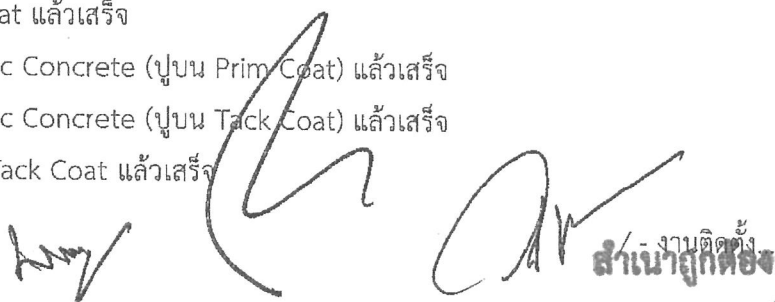 at แล้วเสร็จ
c Concrete (ปูบน Prim Coat) แล้วเสร็จ
c Concrete (ปูบน Tack Coat) แล้วเสร็จ
Tack Coat แล้วเสร็จ
/ - งานติดตั้ง...
สำเนาถูกต้อง